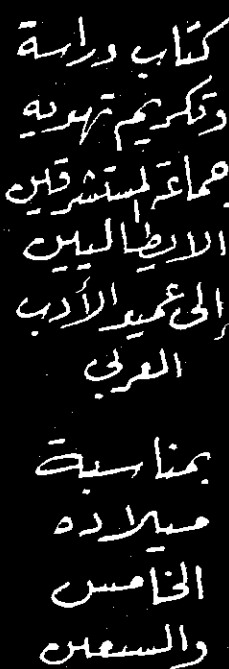 كتاب دراسة
وتكريم تهديه
جماعة المستشرقين
الايطاليين
إلى عميد الأدب
العربي
بمناسبة
ميلاده
الخامس
والسبعين